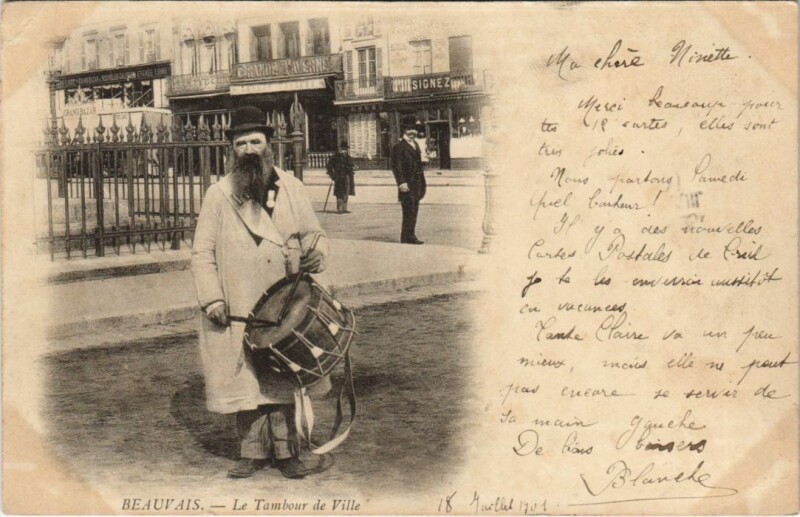 GRANDE TAVERNE
SIGNEZ
GRAND BAZAR
Ma chère Ninette.
Merci beaucoup pour
tes 12 cartes, elles sont
très jolies.
Nous partons Samedi
quel bonheur !
Il y a des nouvelles
Cartes Postales de Creil
je te les enverrai aussitôt
en vacances
Tante Claire va un peu
mieux, mais elle ne peut
pas encore se servir de
sa main gauche
De bons baisers
Blanche
BEAUVAIS. — Le Tambour de Ville
18 Juillet 1901